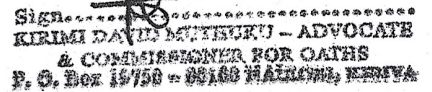 Sign..............................
KIRIMI DAVID MUTHURU – ADVOCATE
& COMMISSIONER FOR OATHS
P. O. Box 19750 – 00100 NAIROBI, KENYA